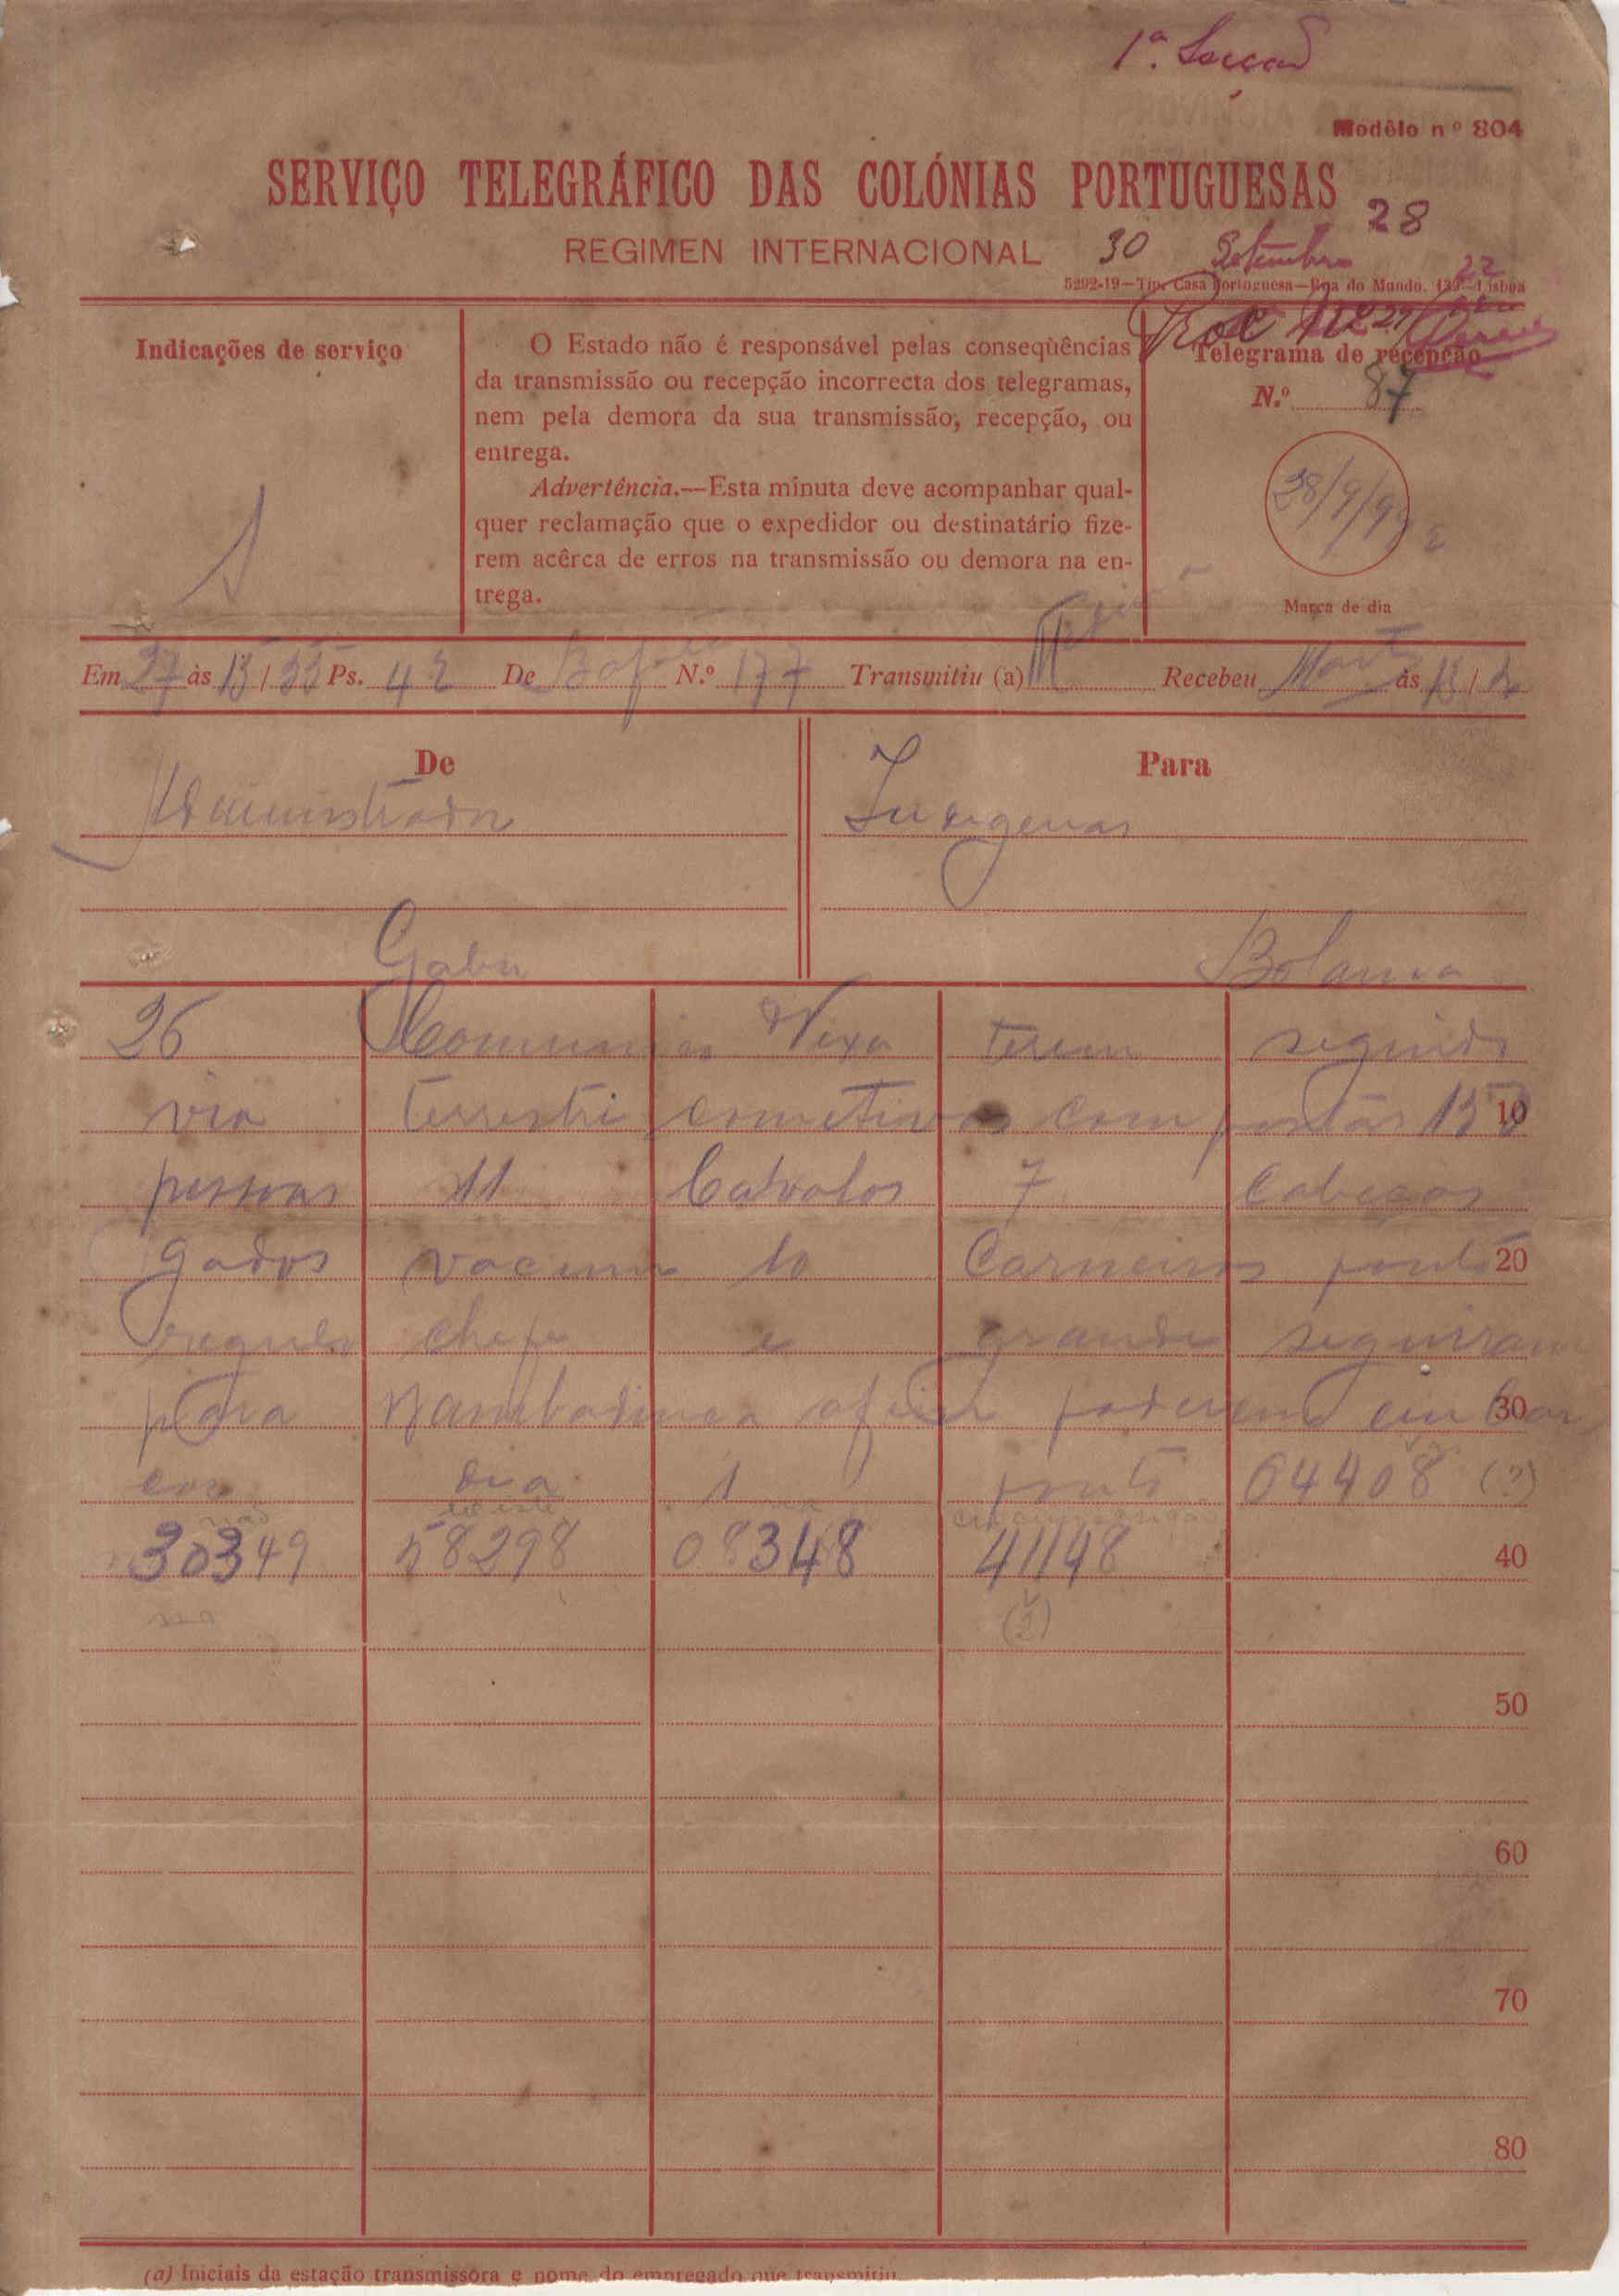 1ª. Secção
Modêlo nº 804
SERVIÇO TELEGRÁFICO DAS COLÓNIAS PORTUGUESAS
28
REGIMEN INTERNACIONAL
30 Setembro
22
5292-19—Tip. Casa Portuguesa—Rua do Mundo, 139—Lisboa
Indicações de serviço
O Estado não é responsável pelas conseqüências
da transmissão ou recepção incorrecta dos telegramas,
nem pela demora da sua transmissão, recepção, ou
entrega.
Advertência.—Esta minuta deve acompanhar qual-
quer reclamação que o expedidor ou destinatário fize-
rem acêrca de erros na transmissão ou demora na en-
trega.
Telegrama de recepção
N.º 87
28/9/9
Marca de dia
Em 27 às 15/35 Ps. 42 De Bafatá N.º 177 Transmitiu (a) Recebeu às
De
Administrador
Gabu
Para
Indigenas
Bolama
26 Comunico Vexa terem seguido
via terrestre comitivas compostas 150 10
pessoas 11 Cavalos 7 Cabeças
gados vacum 10 Carneiros ponto 20
regulo chefe e grande seguiram
para Bambadinca afim poderem embar 30
car dia 1 ponto 04408 (?)
30349 58298 08348 41198 40
(?)
50
60
70
80
(a) Iniciais da estação transmissora e nome do empregado que transmitiu.